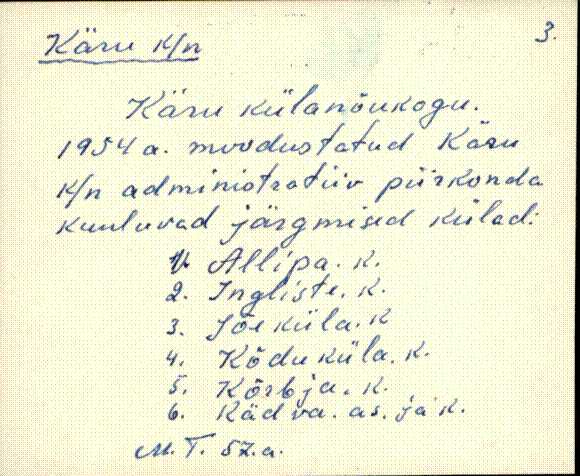 Käru k/n
3.
Käru külanõukogu.
1954 a. moodustatud Käru
k/n administratiiv piirkonda
kuuluvad järgmised külad:
1. Allipa. k.
2. Ingliste. k.
3. Jõeküla. k
4. Kõduküla. k.
5. Kõrbja. k.
6. Kädva. as. ja k.
M. T. 57. a.